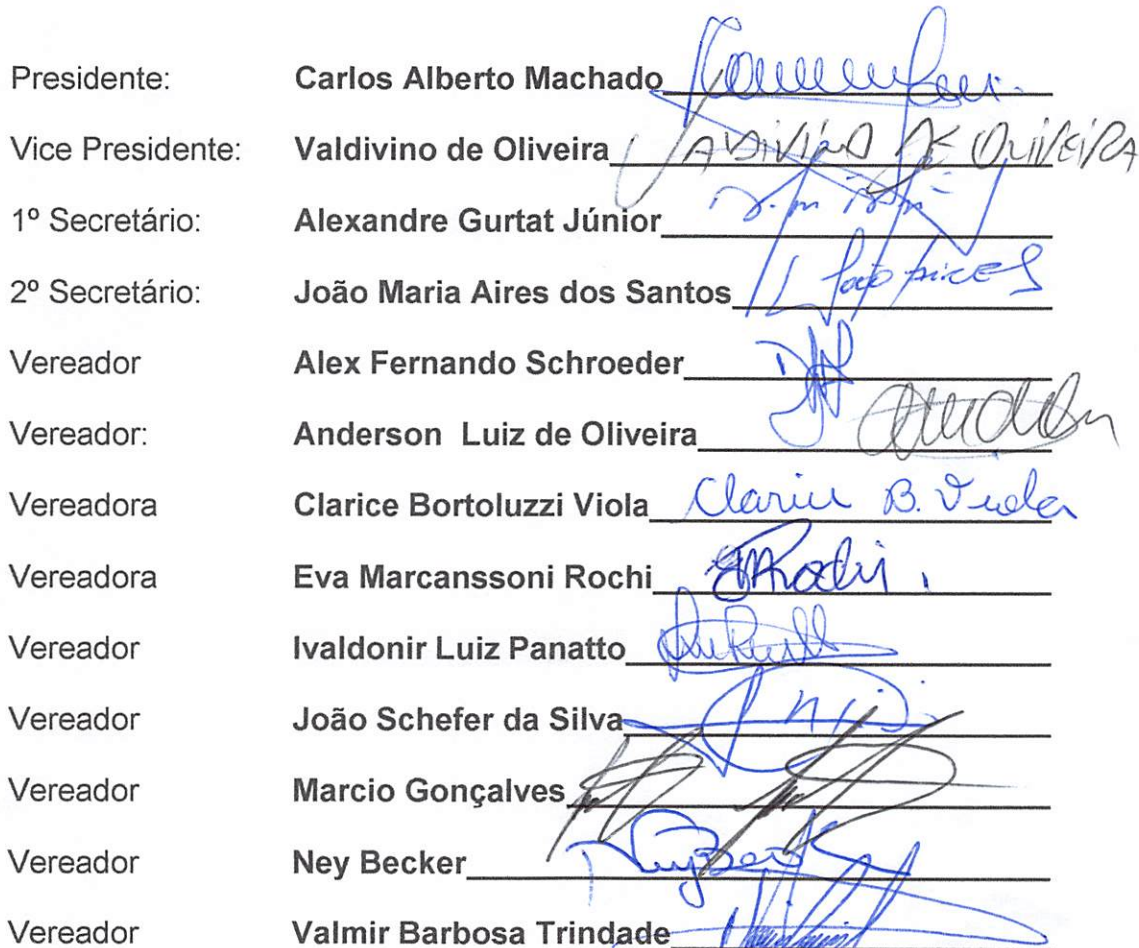 Presidente: Carlos Alberto Machado
Vice Presidente: Valdivino de Oliveira VALDIVINO DE OLIVEIRA
1º Secretário: Alexandre Gurtat Júnior
2º Secretário: João Maria Aires dos Santos João Aires
Vereador Alex Fernando Schroeder
Vereador: Anderson Luiz de Oliveira
Vereadora Clarice Bortoluzzi Viola Clarice B. Viola
Vereadora Eva Marcanssoni Rochi EMRochi
Vereador Ivaldonir Luiz Panatto
Vereador João Schefer da Silva
Vereador Marcio Gonçalves
Vereador Ney Becker Ney Becker
Vereador Valmir Barbosa Trindade